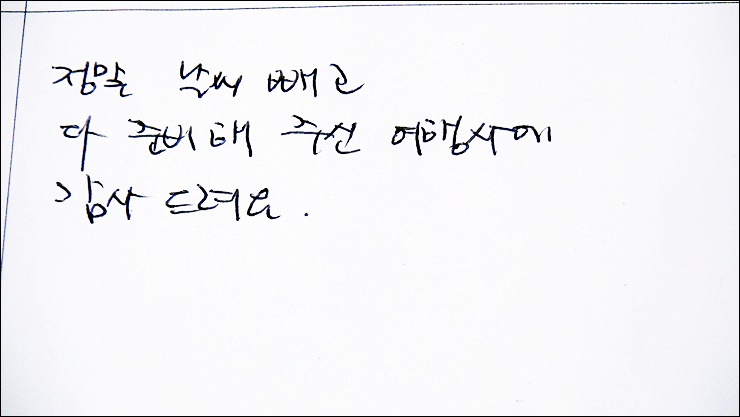 정말 날씨 빼고
다 준비해 주신 여행사에
감사 드려요.